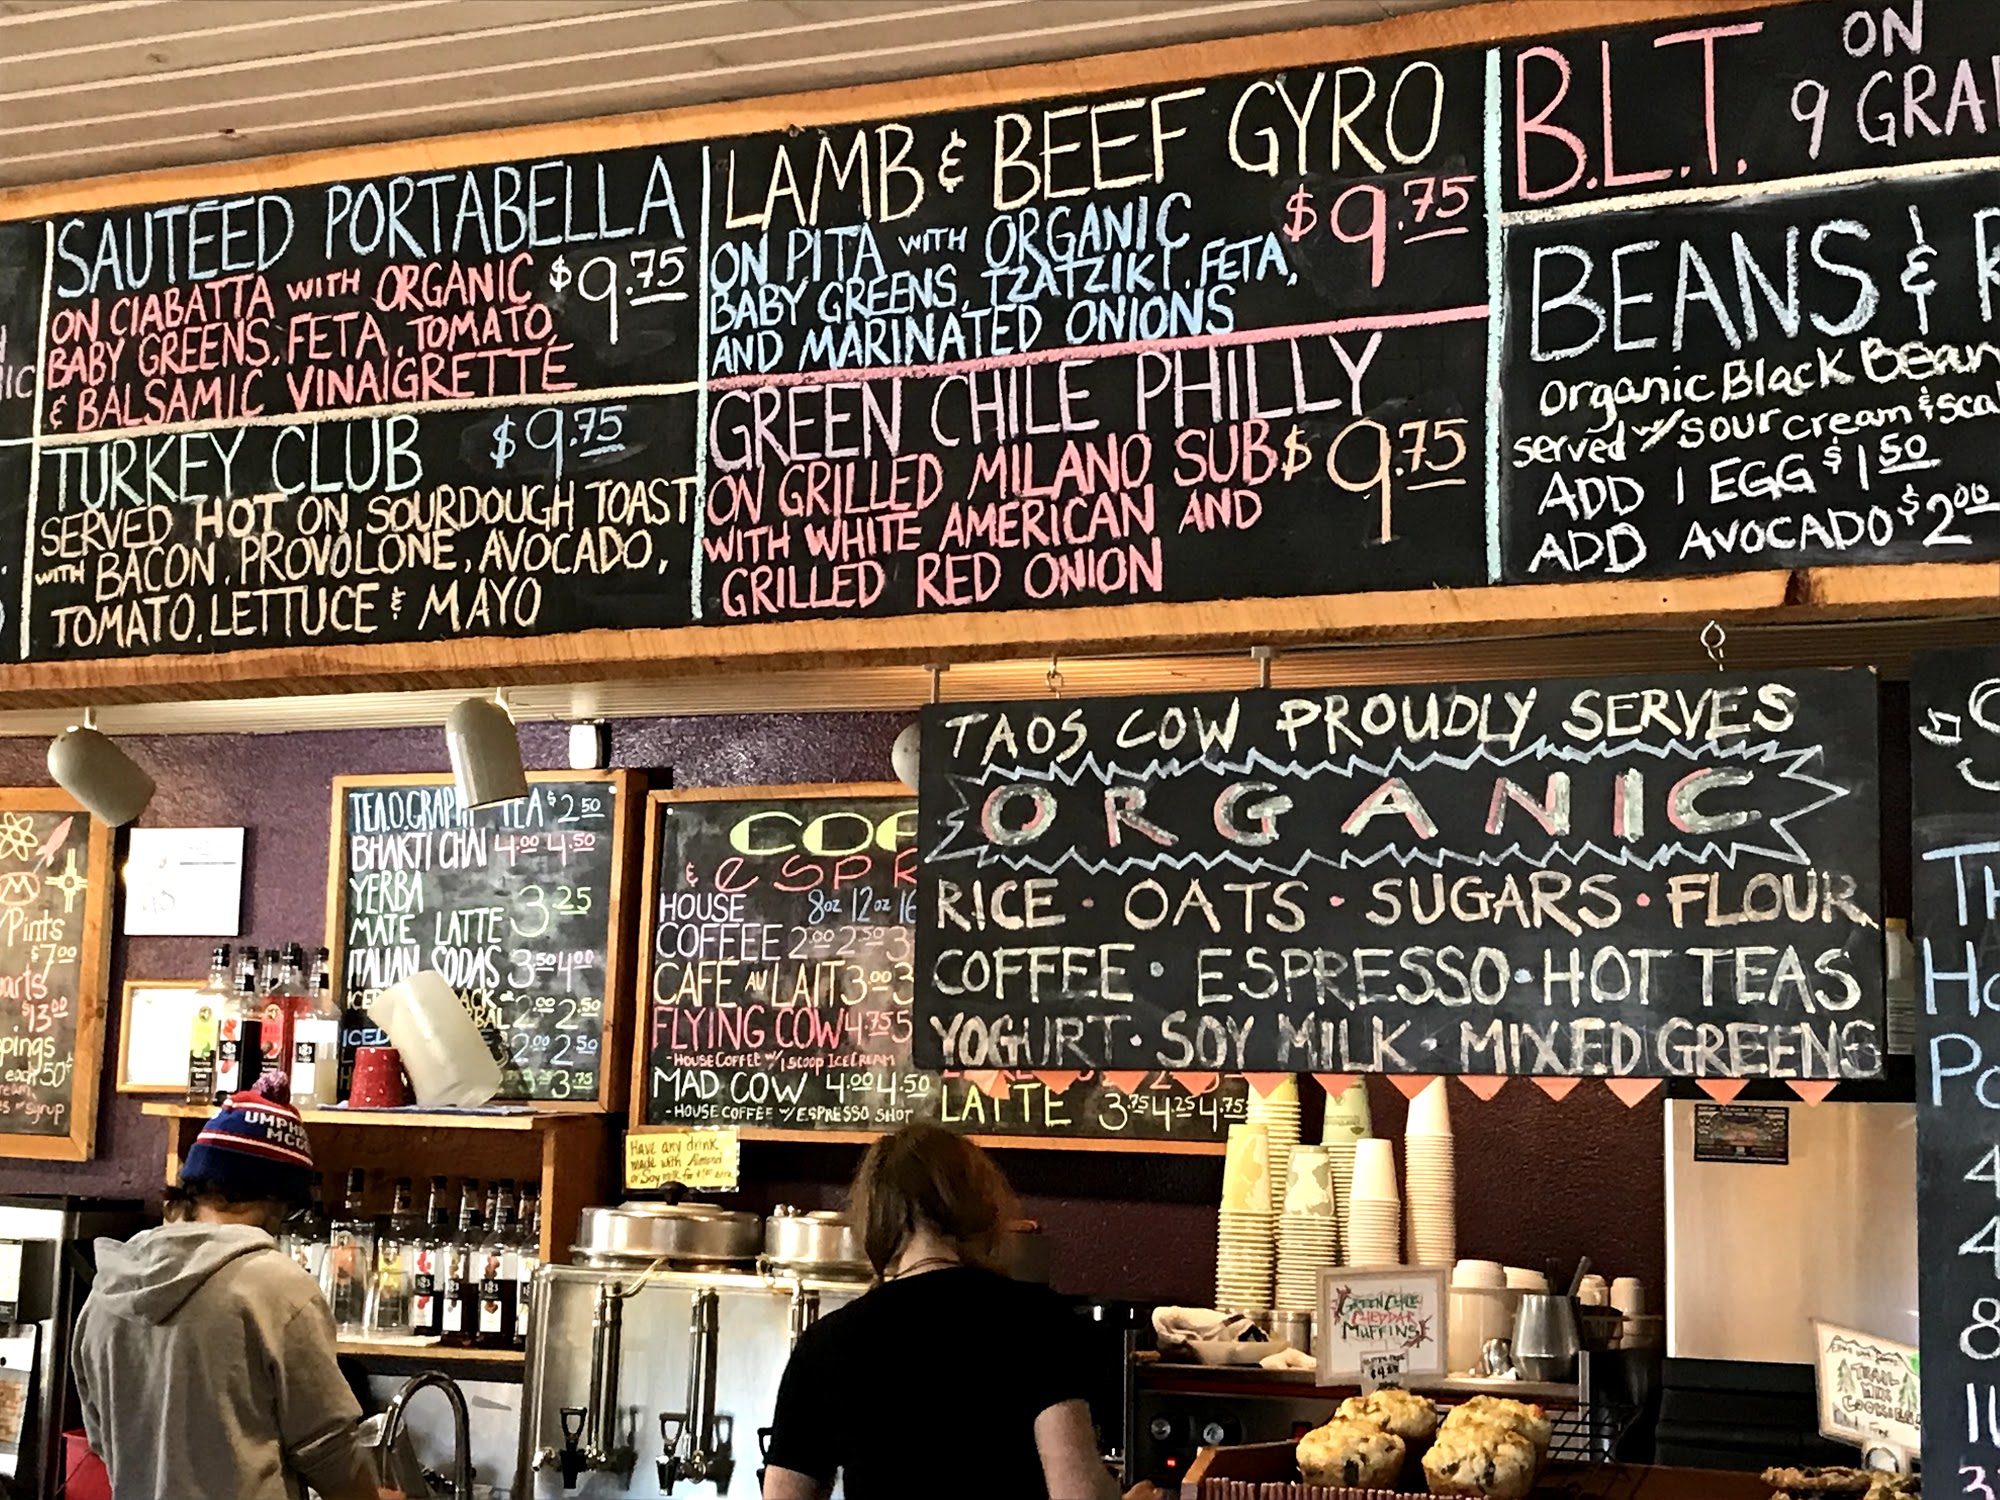 SAUTÉED PORTABELLA
$9.75
ON CIABATTA WITH ORGANIC
BABY GREENS, FETA, TOMATO,
& BALSAMIC VINAIGRETTE
TURKEY CLUB $9.75
SERVED HOT ON SOURDOUGH TOAST
WITH BACON, PROVOLONE, AVOCADO,
TOMATO, LETTUCE & MAYO
LAMB & BEEF GYRO
$9.75
ON PITA WITH ORGANIC
BABY GREENS, TZATZIKI, FETA,
AND MARINATED ONIONS
GREEN CHILE PHILLY
$9.75
ON GRILLED MILANO SUB
WITH WHITE AMERICAN AND
GRILLED RED ONION
B.L.T. ON
9 GRA
BEANS &
Organic Black Bean
served w/ sour cream &
ADD 1 EGG $1.50
ADD AVOCADO $2.00
TAOS COW PROUDLY SERVES
ORGANIC
RICE · OATS · SUGARS · FLOUR
COFFEE · ESPRESSO · HOT TEAS
YOGURT · SOY MILK · MIXED GREENS
Pints
$7.00
$13.00
each 50¢
syrup
TEA $2.50
BHAKTI CHAI 4.00 4.50
YERBA
MATE LATTE 3.25
ITALIAN SODAS 3.50 4.00
2.00 2.50
ICED 2.00 2.50
3.75
& ESPR
HOUSE 8oz 12oz 16
COFFEE 2.00 2.50 3
CAFÉ AU LAIT 3.00 3
FLYING COW 4.75 5
-HOUSE COFFEE W/ 1 SCOOP ICE CREAM
MAD COW 4.00 4.50
-HOUSE COFFEE W/ ESPRESSO SHOT
LATTE 3.75 4.25 4.75
UMPHR
MCG
Have any drink
made with Almond
or Soy milk for
GREEN CHILE
CHEDDAR
MUFFINS
TRAIL
MIX
COOKIES